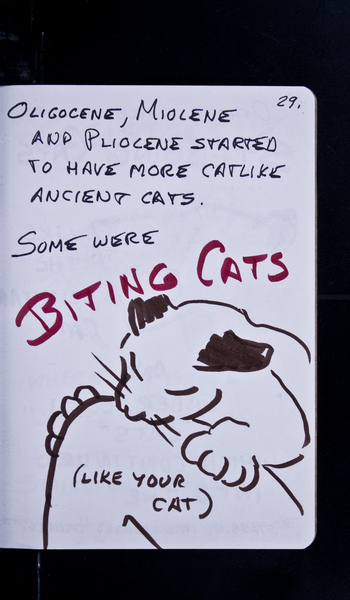 29.
OLIGOCENE, MIOLENE
AND PLIOCENE STARTED
TO HAVE MORE CATLIKE
ANCIENT CATS.
SOME WERE
BITING CATS
(LIKE YOUR
CAT)